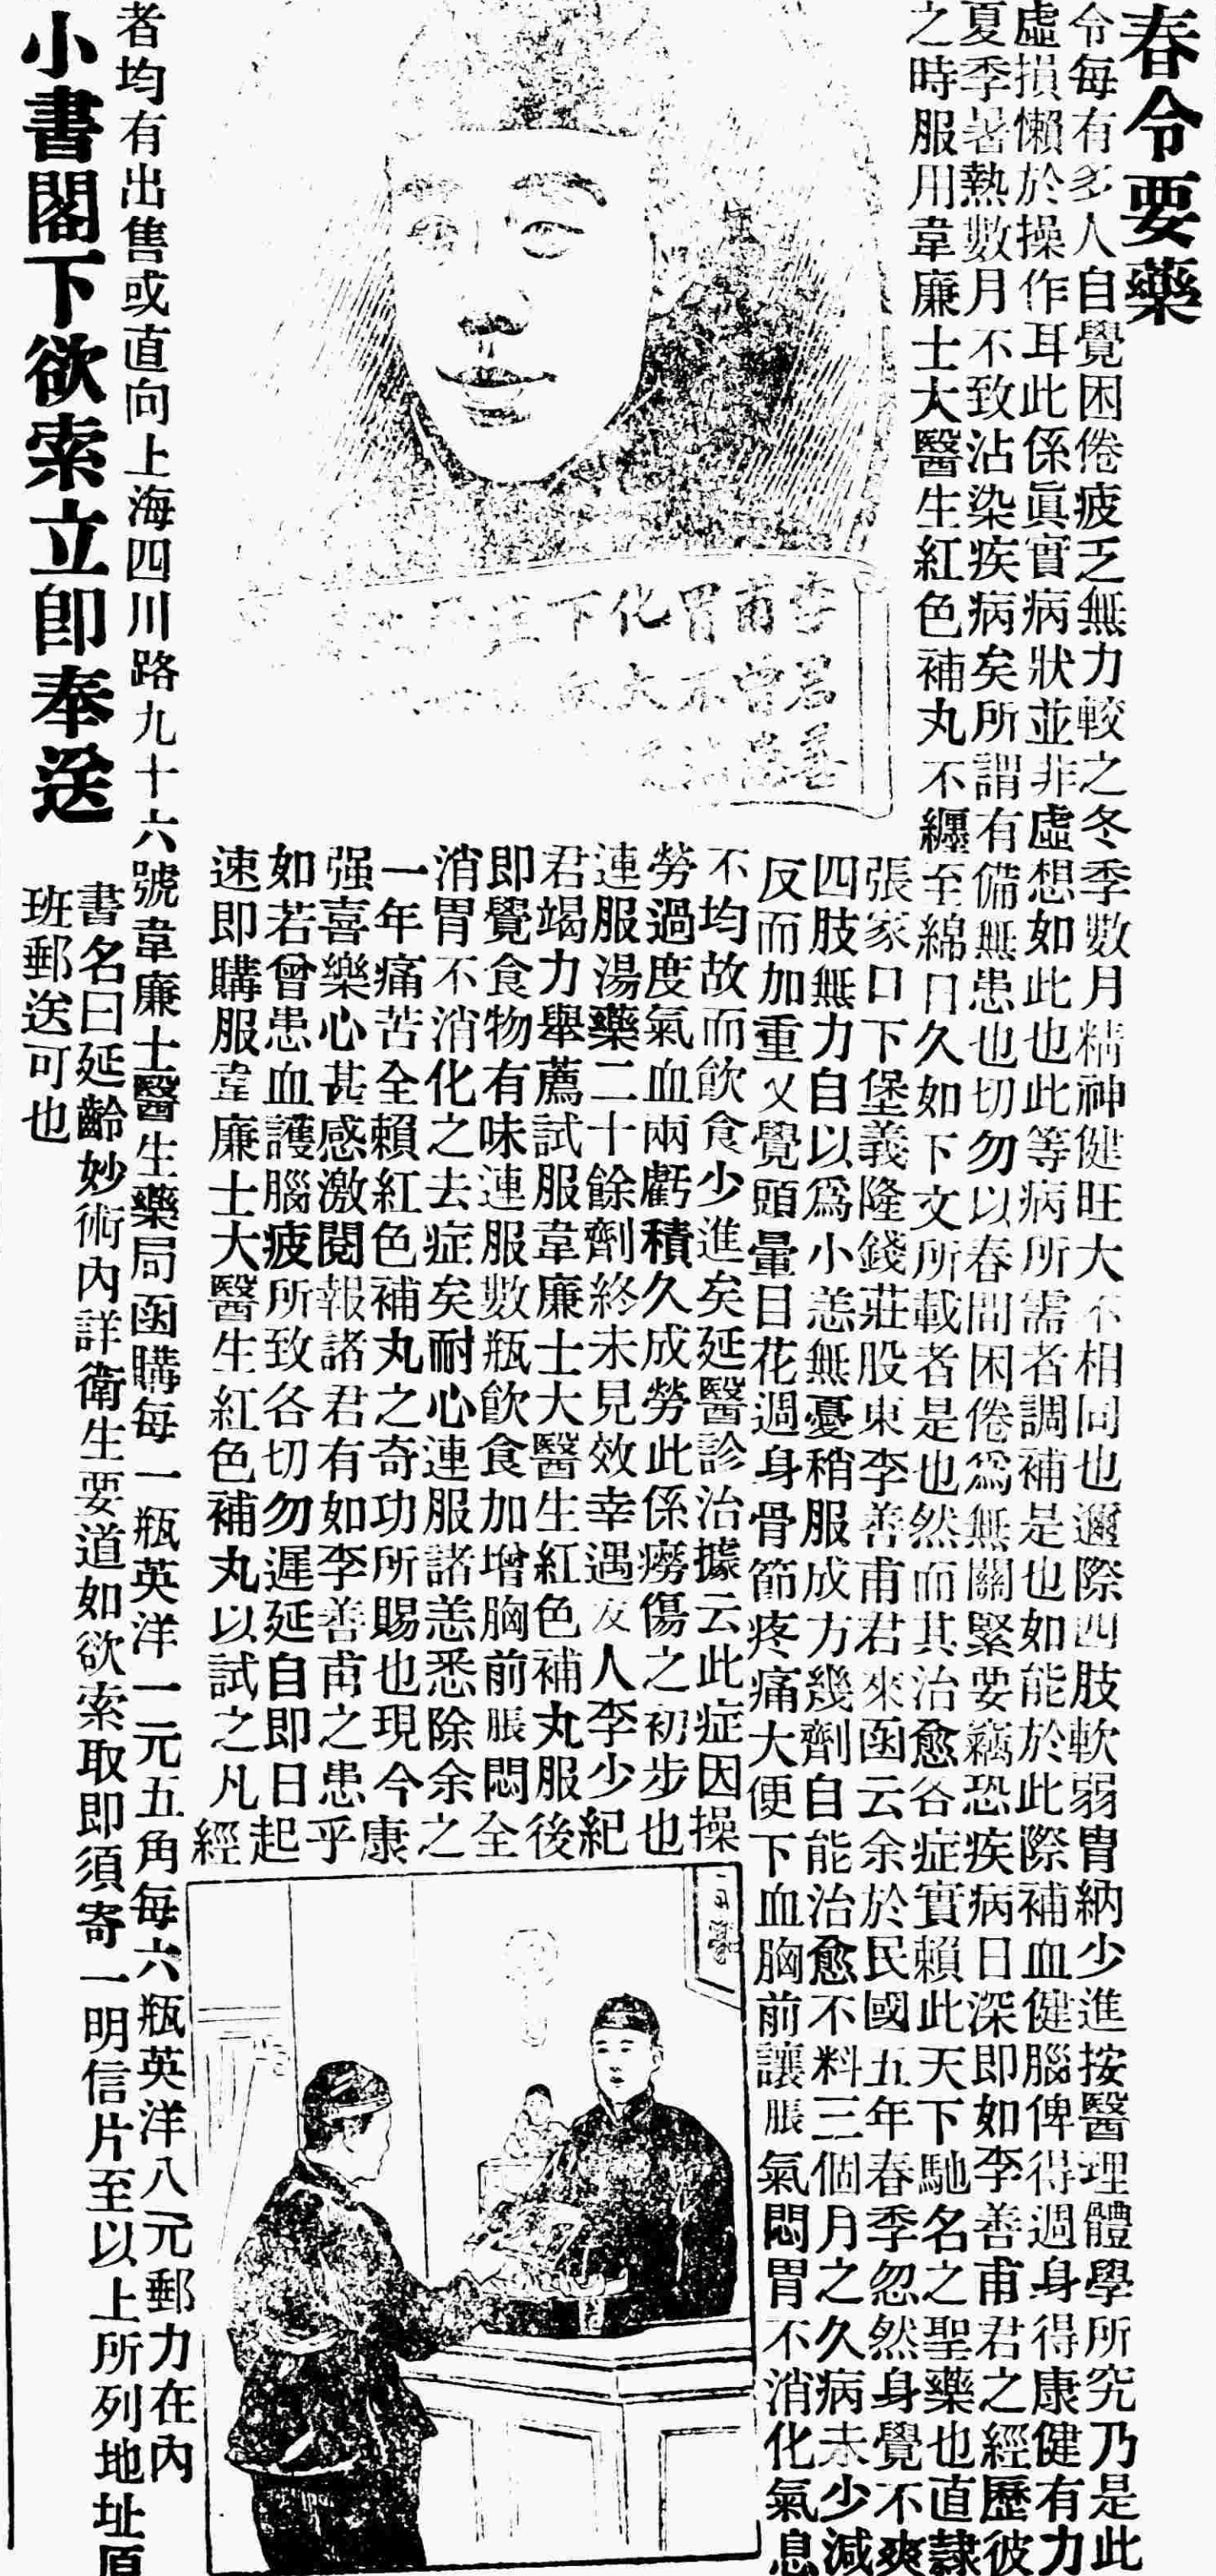 春令要藥
令每有多人自覺困倦疲乏無力較之冬季數月精神健旺大不相同也邇際四肢軟弱胃納少進按醫理體學所究乃是此
虛損懶於操作耳此係眞實病狀並非虛想如此也此等病所需者調補是也如能於此際補血健腦俾得週身得康健有力
夏季暑熱數月不致沾染疾病矣所謂有備無患也切勿以春間困倦爲無關緊要竊恐疾病日深即如李善甫君之經歷彼
之時服用韋廉士大醫生紅色補丸不纏至綿日久如下文所載者是也然而其治愈各症實賴此天下馳名之聖藥也直隸
張家口下堡義隆錢莊股東李善甫君來函云余於民國五年春季忽然身覺不爽
四肢無力自以爲小恙無憂稍服成方幾劑自能治愈不料三個月之久病未少減
反而加重又覺頭暈目花週身骨節疼痛大便下血胸前讓脹氣悶胃不消化氣息
李君善
甫曾患
胃不消
化大
下血
不均故而飲食少進矣延醫診治據云此症因操
勞過度氣血兩虧積久成勞此係癆傷之初步也
連服湯藥二十餘劑終未見效幸遇友人李少紀
君竭力舉薦試服韋廉士大醫生紅色補丸服後
即覺食物有味連服數瓶飲食加增胸前脹悶全
消胃不消化之去症矣耐心連服諸恙悉除余之
一年痛苦全賴紅色補丸之奇功所賜也現今康
强喜樂心甚感激閱報諸君有如李善甫之患乎
如若曾患血護腦疲所致各切勿遲延自即日起
速即購服韋廉士大醫生紅色補丸以試之凡經
者均有出售或直向上海四川路九十六號韋廉士醫生藥局函購每一瓶英洋一元五角每六瓶英洋八元郵力在內
小書閣下欲索立即奉送
書名曰延齡妙術內詳衛生要道如欲索取即須寄一明信片至以上所列地址原
班郵送可也